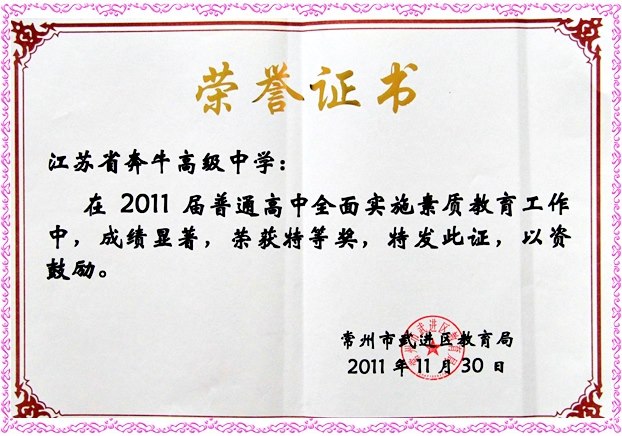 荣誉证书
江苏省奔牛高级中学：
在 2011 届普通高中全面实施素质教育工作
中，成绩显著，荣获特等奖，特发此证，以资
鼓励。
常州市武进区教育局
2011 年 11 月 30 日